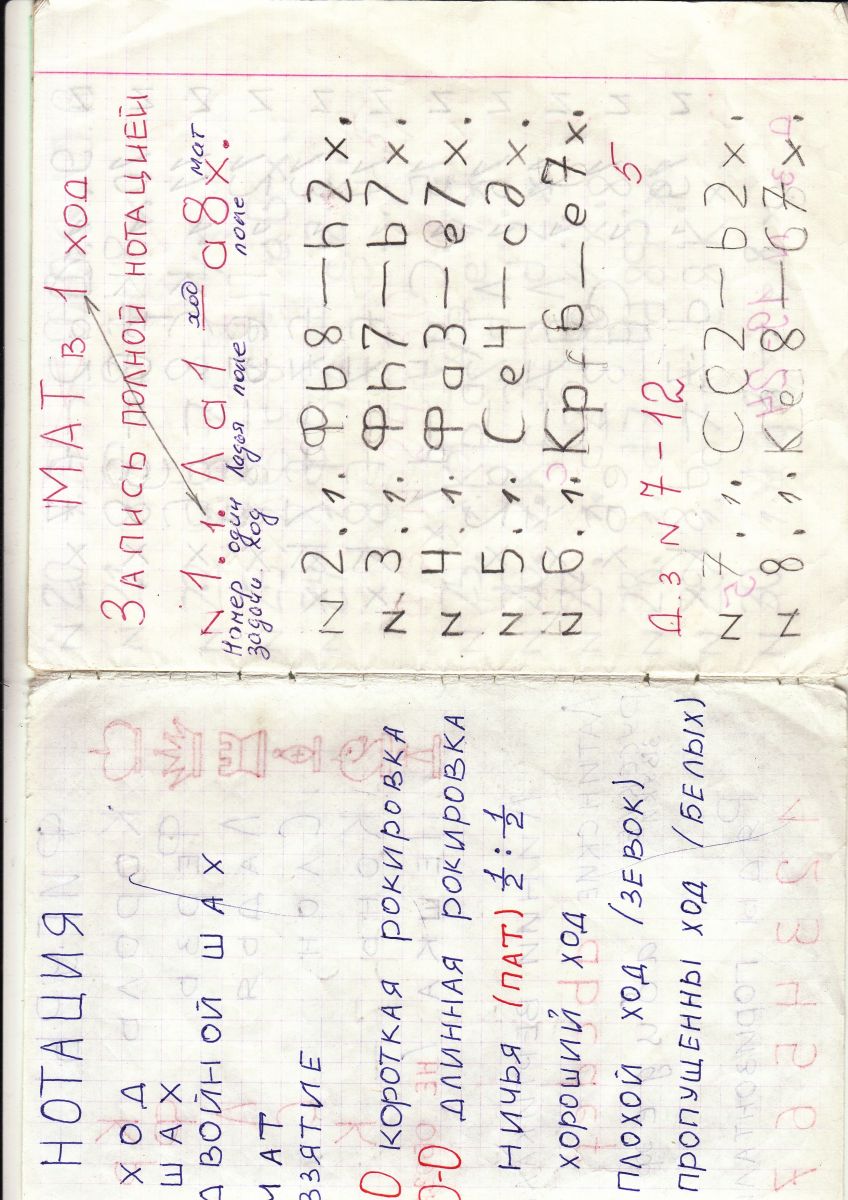 НОТАЦИЯ
ХОД
ШАХ
ДВОЙНОЙ ШАХ
МАТ
ВЗЯТИЕ
0 КОРОТКАЯ РОКИРОВКА
0-0 ДЛИННАЯ РОКИРОВКА
НИЧЬЯ (ПАТ) 1/2 : 1/2
ХОРОШИЙ ХОД
ПЛОХОЙ ХОД (ЗЕВОК)
ПРОПУЩЕННЫ ХОД (БЕЛЫХ)
МАТ в 1 ХОД
ЗАПИСЬ ПОЛНОЙ НОТАЦИЕЙ
N 1. 1. Л а1 ход а8 х.
мат
Номер задачи один ход ладья поле поле
N 2. 1. Фb8 — h2 x.
N 3. 1. Фh7 — b7 x.
N 4. 1. Фa3 — e7 x.
N 5. 1. Ce4 — x.
N 6. 1. Kpf6 — e7 x.
5
Д.З N 7 - 12
N 7. 1. CC2 — b2 x.
N 8. 1. Ke8 — 7 x.